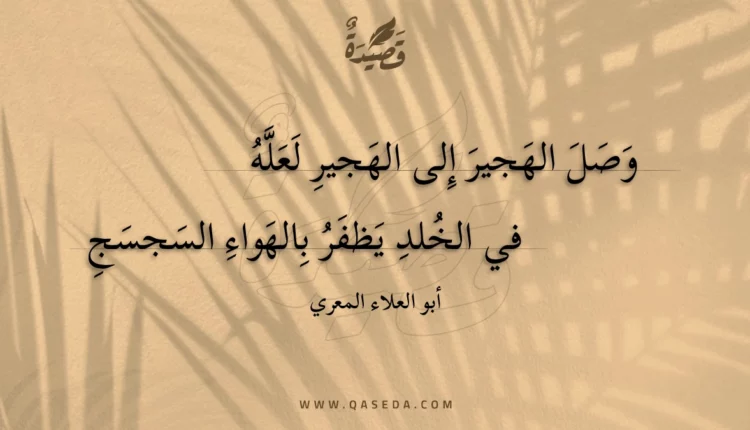 قَصِيْدَةٌ
وَصَلَ الهَجيرَ إِلى الهَجيرِ لَعَلَّهُ
في الخُلدِ يَظفَرُ بِالهَواءِ السَجسَجِ
أبو العلاء المعري
WWW.QASEDA.COM